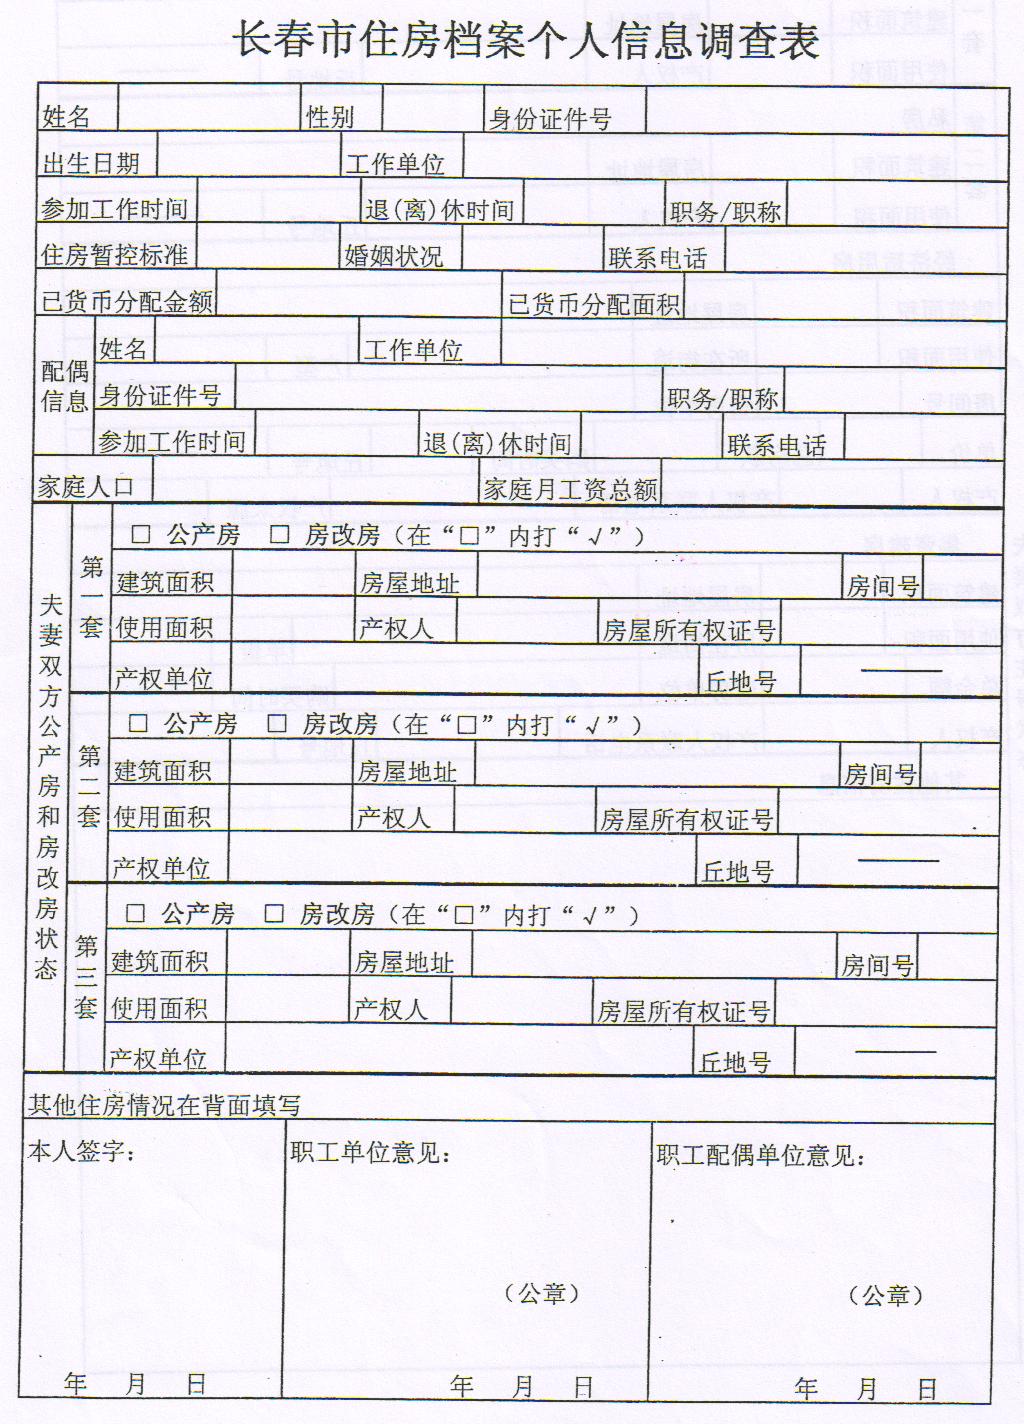 长春市住房档案个人信息调查表
姓名 性别 身份证件号
出生日期 工作单位
参加工作时间 退(离)休时间 职务/职称
住房暂控标准 婚姻状况 联系电话
已货币分配金额 已货币分配面积
配偶信息
姓名 工作单位
身份证件号 职务/职称
参加工作时间 退(离)休时间 联系电话
家庭人口 家庭月工资总额
夫妻双方公产房和房改房状态
第一套
□ 公产房 □ 房改房（在“□”内打“√”）
建筑面积 房屋地址 房间号
使用面积 产权人 房屋所有权证号
产权单位 丘地号 ——
第二套
□ 公产房 □ 房改房（在“□”内打“√”）
建筑面积 房屋地址 房间号
使用面积 产权人 房屋所有权证号
产权单位 丘地号 ——
第三套
□ 公产房 □ 房改房（在“□”内打“√”）
建筑面积 房屋地址 房间号
使用面积 产权人 房屋所有权证号
产权单位 丘地号 ——
其他住房情况在背面填写
本人签字： 职工单位意见： 职工配偶单位意见：
（公章） （公章）
年 月 日 年 月 日 年 月 日